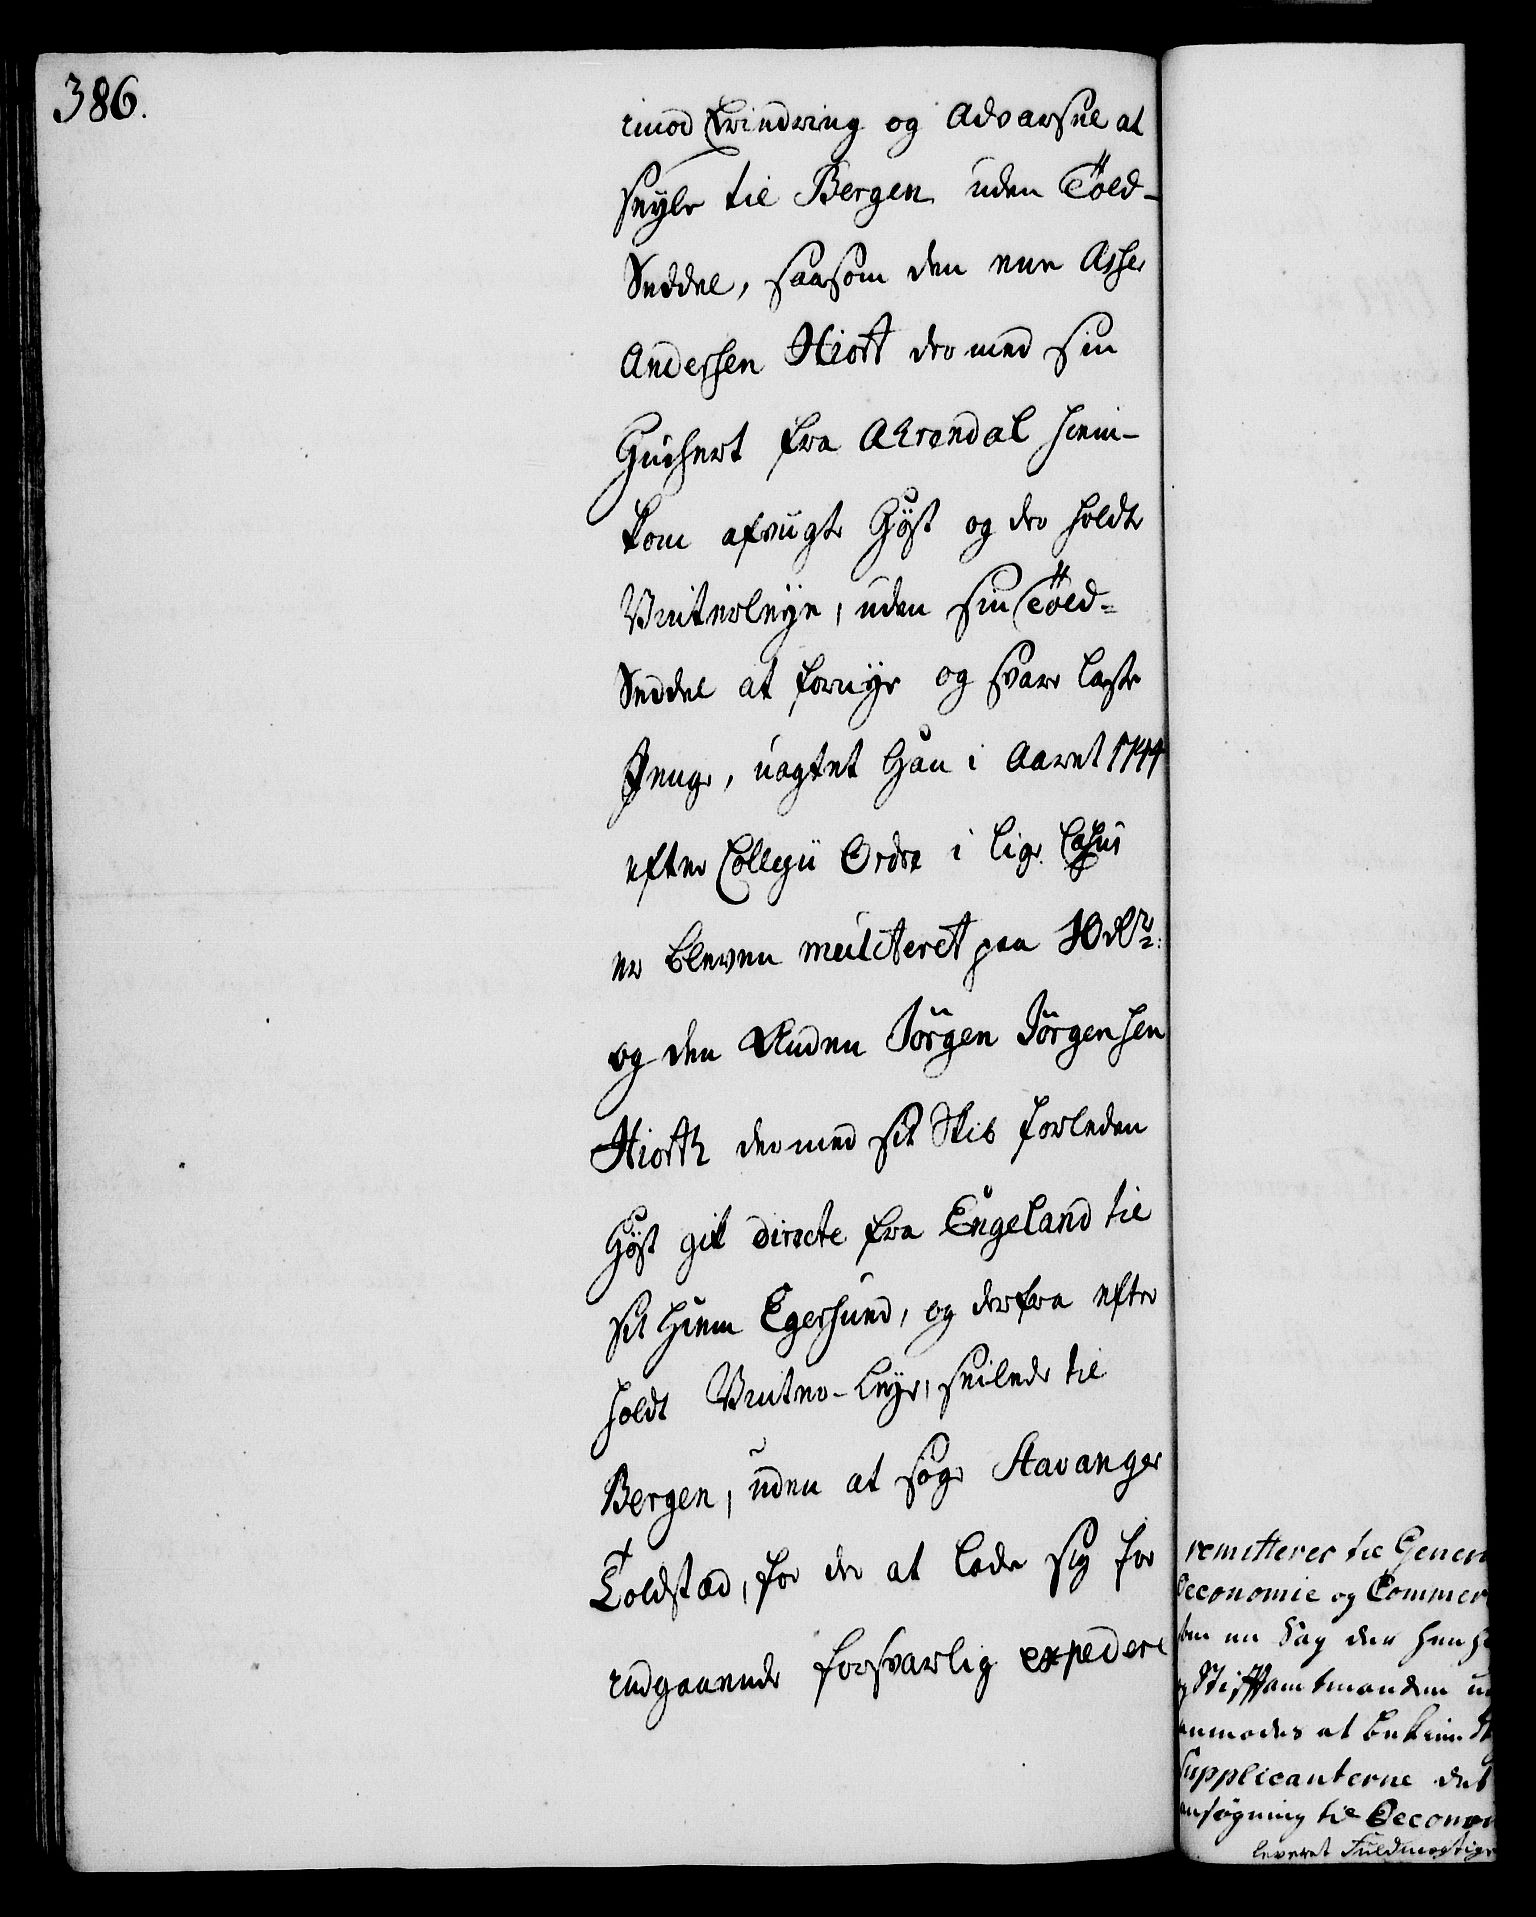 386.
imod Erindring og Advarsel at
seyle til Bergen uden Told-
Seddel, saasom den eene Asser
Andersen Hiort der med sin
Guckert fra Arrendal hiem-
kom afvigte Høst og der holdte
Vinterleye, uden sin Told-
Seddel at fornye og svare laste
Penge, uagtet Han i Aaret 1744
efter Collegii Ordre i lige Casus
er bleven mulcteret paa 10 Rd.
og den Anden Jörgen Jörgensen
Hiorth der med sit Skib forleden
Høst gik directe fra Engeland til
sit Hiem Egersund, og derfra efter
holdt Vinter-Leye, seilede til
Bergen, uden at søge Stavanger
Toldsted, for der at lade sig for
indgaaende forsvarlig expedere
remitteres til Gener
Oeconomie og Commer
som en Sag der hen h
og Stiftamtmanden
anmodes at bekiendt
Supplicanterne det
ansøgning til Oeconom
leveret Fuldmægtige